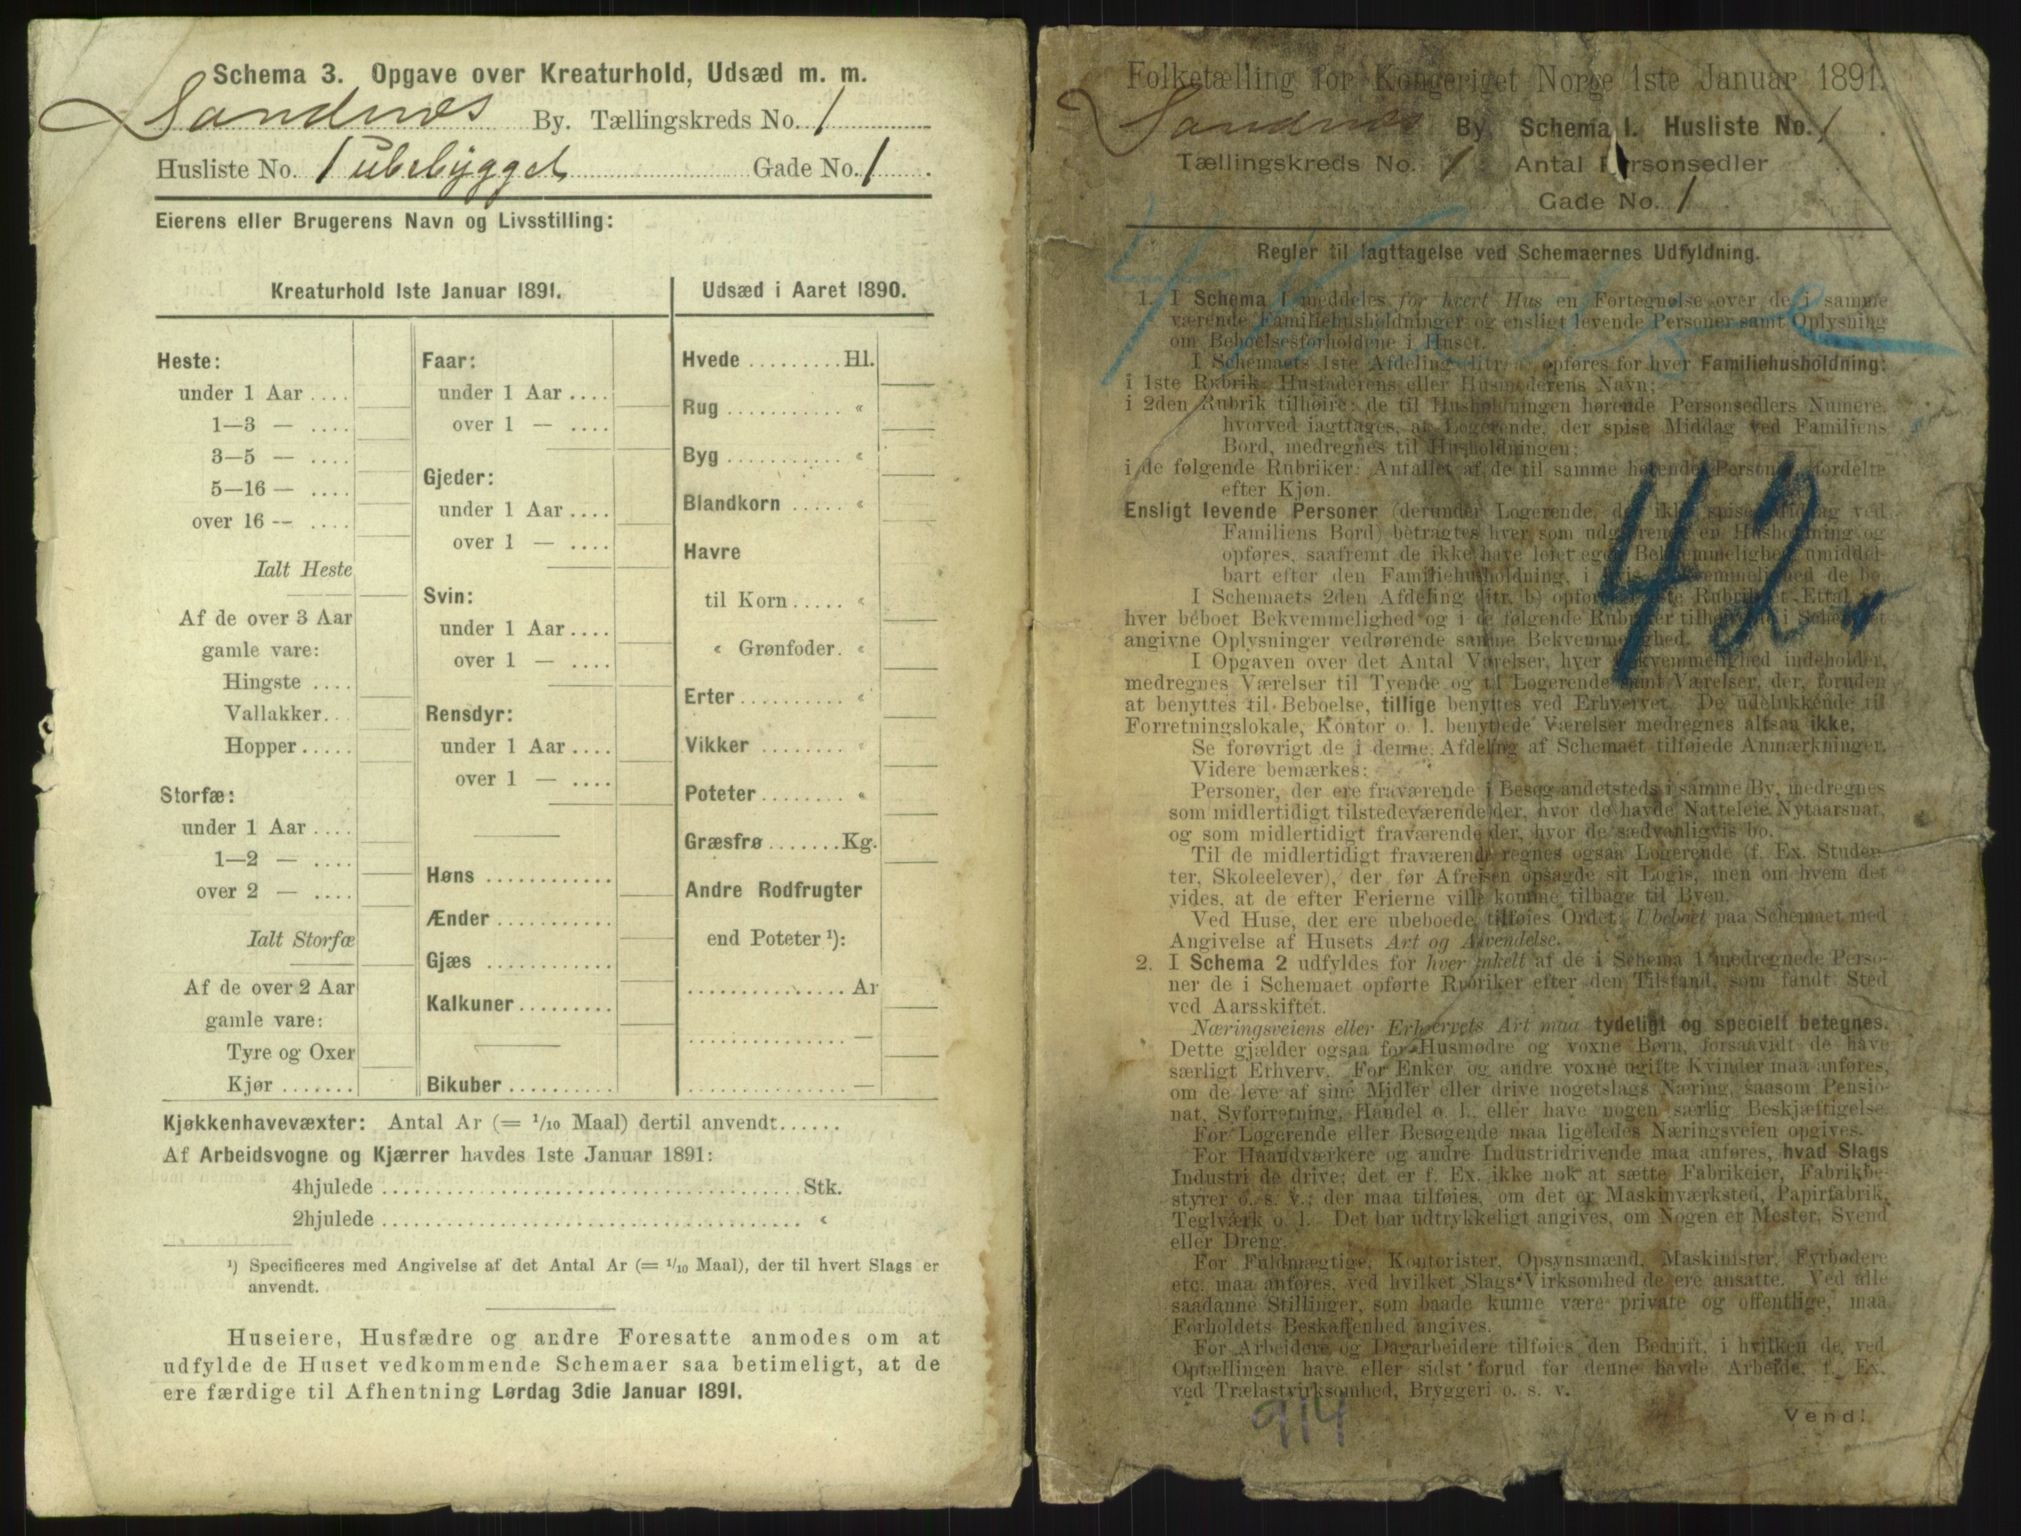 Schema 3. Opgave over Kreaturhold, Udsæd m. m.
Sandnes By. Tællingskreds No. 1
Husliste No. 1 ubebygget Gade No. 1.
Eierens eller Brugerens Navn og Livsstilling:
Kreaturhold 1ste Januar 1891.
Heste:
under 1 Aar ....
1—3 — ....
3—5 — ....
5—16 — ....
over 16 — ....
Ialt Heste
Af de over 3 Aar
gamle vare:
Hingste ....
Vallakker..
Hopper .....
Storfæ:
under 1 Aar ....
1—2 — ....
over 2 — ....
Ialt Storfæ
Af de over 2 Aar
gamle vare:
Tyre og Oxer
Kjør .......
Faar:
under 1 Aar ....
over 1 — ....
Gjeder:
under 1 Aar ....
over 1 — ....
Svin:
under 1 Aar ....
over 1 — ....
Rensdyr:
under 1 Aar ....
over 1 — ....
Høns ............
Ænder ...........
Gjæs ............
Kalkuner .........
Bikuber ..........
Udsæd i Aaret 1890.
Hvede .........Hl.
Rug ........... «
Byg ........... «
Blandkorn ..... «
Havre
til Korn ..... «
« Grønfoder. «
Erter .......... «
Vikker ........ «
Poteter ........ «
Græsfrø .......Kg.
Andre Rodfrugter
end Poteter ¹):
............... Ar
............... —
............... —
Kjøkkenhavevæxter: Antal Ar (= 1/10 Maal) dertil anvendt......
Af Arbeidsvogne og Kjærrer havdes 1ste Januar 1891:
4hjulede ....................................... Stk.
2hjulede ....................................... «
¹) Specificeres med Angivelse af det Antal Ar (= 1/10 Maal), der til hvert Slags er
anvendt.
Huseiere, Husfædre og andre Foresatte anmodes om at
udfylde de Huset vedkommende Schemaer saa betimeligt, at de
ere færdige til Afhentning Lørdag 3die Januar 1891.
Folketælling for Kongeriget Norge 1ste Januar 1891.
Sandnes By. Schema 1. Husliste No. 1.
Tællingskreds No. 1 Antal Personsedler
Gade No. 1
Regler til Iagttagelse ved Schemaernes Udfyldning.
1. I Schema 1 meddeles for hvert Hus en Fortegnelse over de i samme
værende Familiehusholdninger og ensligt levende Personer samt Oplysning
om Beboelsesforholdene i Huset.
I Schemaets 1ste Afdeling (litr. a) opføres for hver Familiehusholdning:
i 1ste Rubrik: Husfaderens eller Husmoderens Navn;
i 2den Rubrik tilhøire: de til Husholdningen hørende Personsedlers Numere,
hvorved iagttages, at Logerende, der spise Middag ved Familiens
Bord, medregnes til Husholdningen;
i de følgende Rubriker: Antallet af de til samme hørende Personer, fordelte
efter Kjøn.
Ensligt levende Personer (derunder Logerende, der ikke spise Middag ved
Familiens Bord) betragtes hver som udgjørende en Husholdning og
opføres, saafremt de ikke have leiet egen Bekvemmelighed, umiddel-
bart efter den Familiehusholdning, i hvis Bekvemmelighed de bo.
I Schemaets 2den Afdeling (litr. b) opføres i 1ste Rubrik et Ettal for
hver beboet Bekvemmelighed og i de følgende Rubriker tilhøire de i Schemaet
angivne Oplysninger vedrørende samme Bekvemmelighed.
I Opgaven over det Antal Værelser, hver Bekvemmelighed indeholder,
medregnes Værelser til Tyende og til Logerende samt Værelser, der, foruden
at benyttes til Beboelse, tillige benyttes ved Erhvervet. De udelukkende til
Forretningslokale, Kontor o. l. benyttede Værelser medregnes altsaa ikke.
Se forøvrigt de i denne Afdeling af Schemaet tilføiede Anmærkninger.
Videre bemærkes:
Personer, der ere fraværende i Besøg andetsteds i samme By, medregnes
som midlertidigt tilstedeværende der, hvor de havde Natteleie Nytaarsnat,
og som midlertidigt fraværende der, hvor de sædvanligvis bo.
Til de midlertidigt fraværende regnes ogsaa Logerende (f. Ex. Studen-
ter, Skoleelever), der før Afreisen opsagde sit Logis, men om hvem det
vides, at de efter Ferierne ville komme tilbage til Byen.
Ved Huse, der ere ubeboede, tilføies Ordet: Ubeboet paa Schemaet med
Angivelse af Husets Art og Anvendelse.
2. I Schema 2 udfyldes for hver enkelt af de i Schema 1 medregnede Perso-
ner de i Schemaet opførte Rubriker efter den Tilstand, som fandt Sted
ved Aarsskiftet.
Næringsveiens eller Erhvervets Art maa tydeligt og specielt betegnes.
Dette gjælder ogsaa for Husmødre og voxne Børn, forsaavidt de have
særligt Erhverv. For Enker og andre voxne ugifte Kvinder maa anføres,
om de leve af sine Midler eller drive nogetslags Næring, saasom Pensio-
nat, Syforretning, Handel o. l., eller have nogen særlig Beskjæftigelse.
For Logerende eller Besøgende maa ligeledes Næringsveien opgives.
For Haandværkere og andre Industridrivende maa anføres, hvad Slags
Industri de drive; det er f. Ex. ikke nok at sætte Fabrikeier, Fabrikbe-
styrer o. s. v.; der maa tilføies, om det er Maskinværksted, Papirfabrik,
Teglværk o. l. Det bør udtrykkeligt angives, om Nogen er Mester, Svend
eller Dreng.
For Fuldmægtige, Kontorister, Opsynsmænd, Maskinister, Fyrbødere
etc. maa anføres, ved hvilket Slags Virksomhed de ere ansatte. Ved alle
saadanne Stillinger, som baade kunne være private og offentlige, maa
Forholdets Beskaffenhed angives.
For Arbeidere og Dagarbeidere tilføies den Bedrift, i hvilken de ved
Optællingen have eller sidst forud for denne havde Arbeide, f. Ex.
ved Trælastvirksomhed, Bryggeri o. s. v.
Vend!
42
914